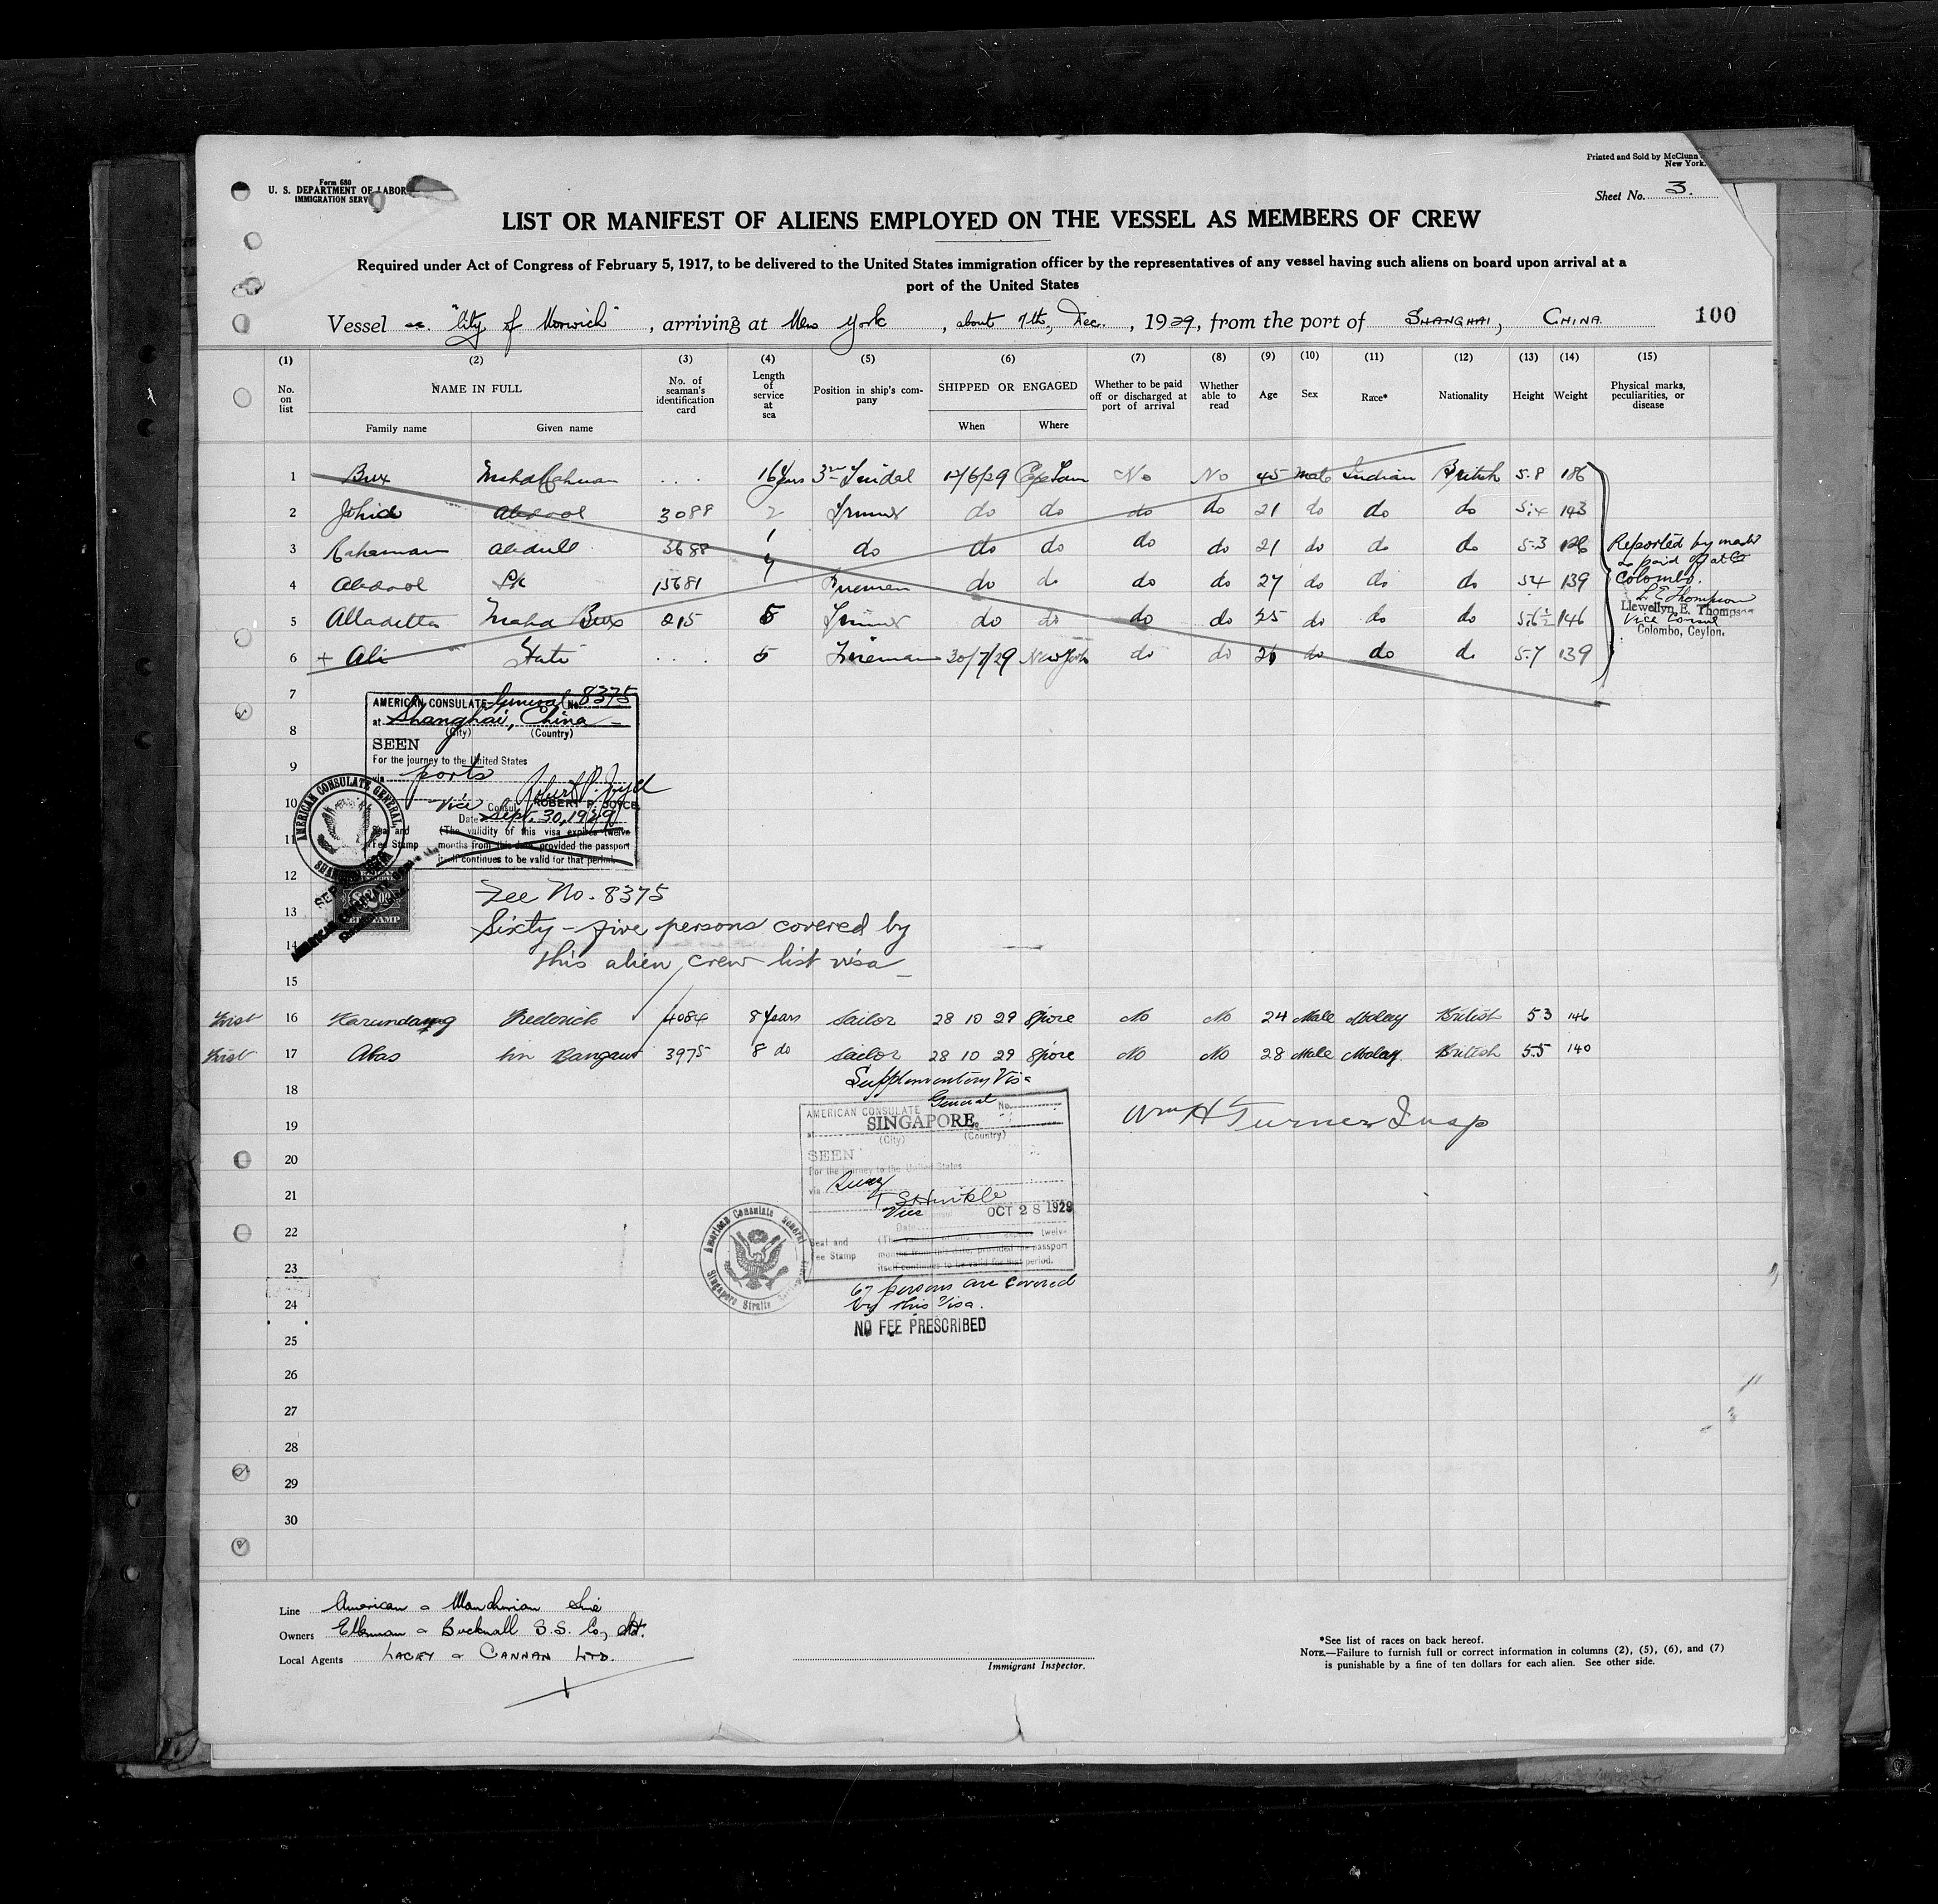 Form 680
U. S. DEPARTMENT OF LABOR
IMMIGRATION SERV
Printed and Sold by McClunn
New York.
Sheet No. 3.
LIST OR MANIFEST OF ALIENS EMPLOYED ON THE VESSEL AS MEMBERS OF CREW
Required under Act of Congress of February 5, 1917, to be delivered to the United States immigration officer by the representatives of any vessel having such aliens on board upon arrival at a
port of the United States
Vessel ss. "City of Norwich", arriving at New York, about 7th, Dec., 1929, from the port of SHANGHAI, CHINA. 100
(1) (2) (3) (4) (5) (6) (7) (8) (9) (10) (11) (12) (13) (14) (15)
No. on list
NAME IN FULL
Family name
Given name
No. of seaman's identification card
Length of service at sea
Position in ship's company
SHIPPED OR ENGAGED
When
Where
Whether to be paid off or discharged at port of arrival
Whether able to read
Age
Sex
Race*
Nationality
Height
Weight
Physical marks, peculiarities, or disease
1 Bux .... 16 Years 3rd Tindel 12/6/29 No No 45 Male Indian British 5.8 186
2 Abdool 3088 2 Trimmer do do do do 21 do do do 5.4 143
3 Rahaman Abdull 3688 1 do do do do do 21 do do do 5.3 126
4 Abdool Sk 15681 4 Firemen do do do do 27 do do do 5.4 139
5 Alladetta Bux 215 5 Trimmer do do do do 25 do do do 5.6½ 146
6 + Ali .... 5 Fireman 30/7/29 New York do do do do do 5.7 139
Reported by master
as paid off at Co
Colombo.
L E Thompson
Llewellyn E. Thompson
Vice Consul
Colombo, Ceylon.
7
AMERICAN CONSULATE General No. 8375
at Shanghai, China
(City) (Country)
8
SEEN
For the journey to the United States
9
via ports
10
Vice Consul ROBERT P. JOYCE
Date Sept. 30, 1929
11
Seal and Fee Stamp
(The validity of this visa expires twelve
months from this date, provided the passport
itself continues to be valid for that period.
AMERICAN CONSULATE GENERAL
12
Fee No. 8375
13
Sixty-five persons covered by
14
this alien crew list visa
15
First 16 Frederick 4084 8 Years Sailor 28 10 29 Spore No No 24 Male Malay British 5.3 146
First 17 Abas bin 3975 8 do Sailor 28 10 29 Spore No No 28 Male Malay British 5.5 140
18
Supplementary Visa
AMERICAN CONSULATE General No.
19
at SINGAPORE,
(City) (Country)
Wm H Turner Insp
20
SEEN
For the journey to the United States
21
via Suez
Vice Consul OCT 28 1929
22
Date
Seal and Fee Stamp
months from this date, provided the passport
23
itself continues to be valid for that period.
American Consulate General
Singapore Straits
67 persons are covered
24
by this Visa.
NO FEE PRESCRIBED
25
26
27
28
29
30
Line American & Manchurian Line
Owners Ellerman & Bucknall S.S. Co, Ltd.
Local Agents LACEY & CANNAN LTD.
Immigrant Inspector.
*See list of races on back hereof.
NOTE.—Failure to furnish full or correct information in columns (2), (5), (6), and (7)
is punishable by a fine of ten dollars for each alien. See other side.